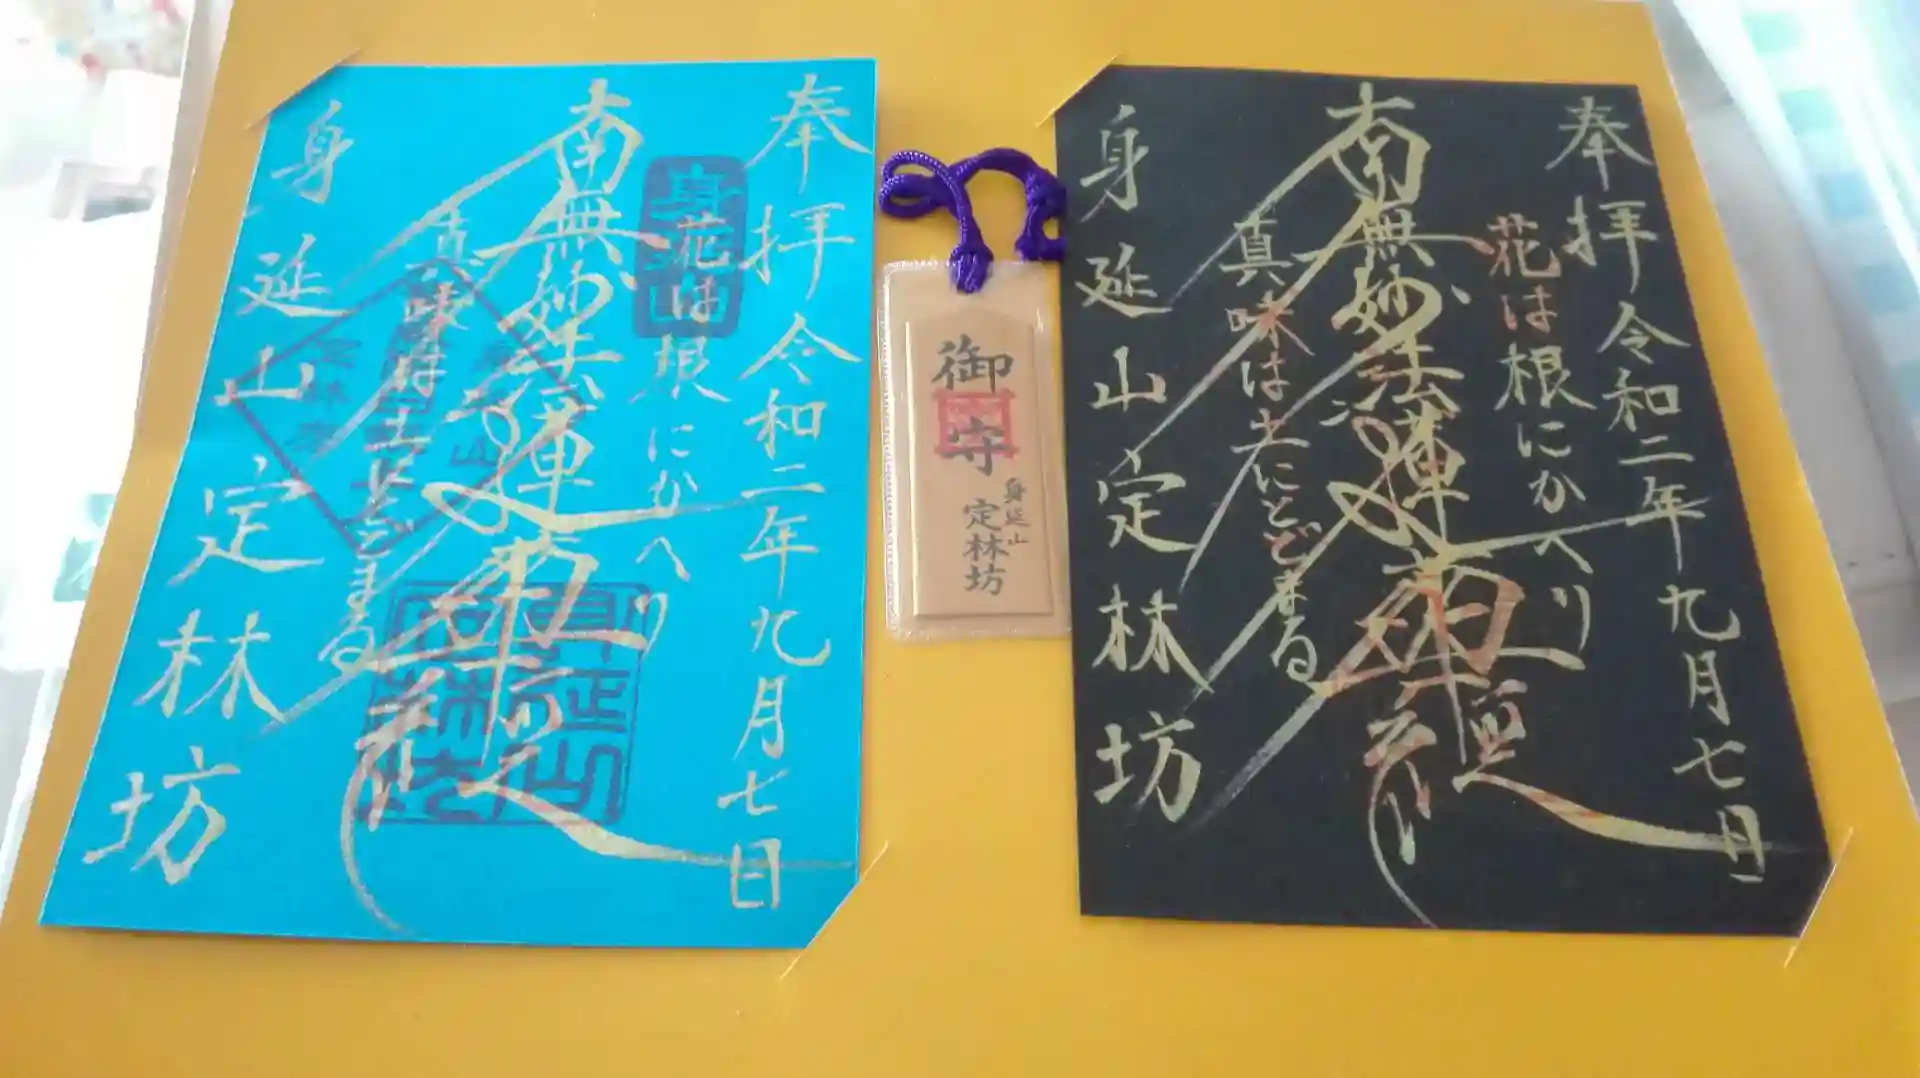 奉拝 令和二年九月七日
花は根にかへり
南無妙法蓮華経
真味は土にとどまる
身延山定林坊
身延山
身延山定林坊
御守
身延山
定林坊
奉拝 令和二年九月七日
花は根にかへり
南無妙法蓮華経
真味は土にとどまる
身延山定林坊